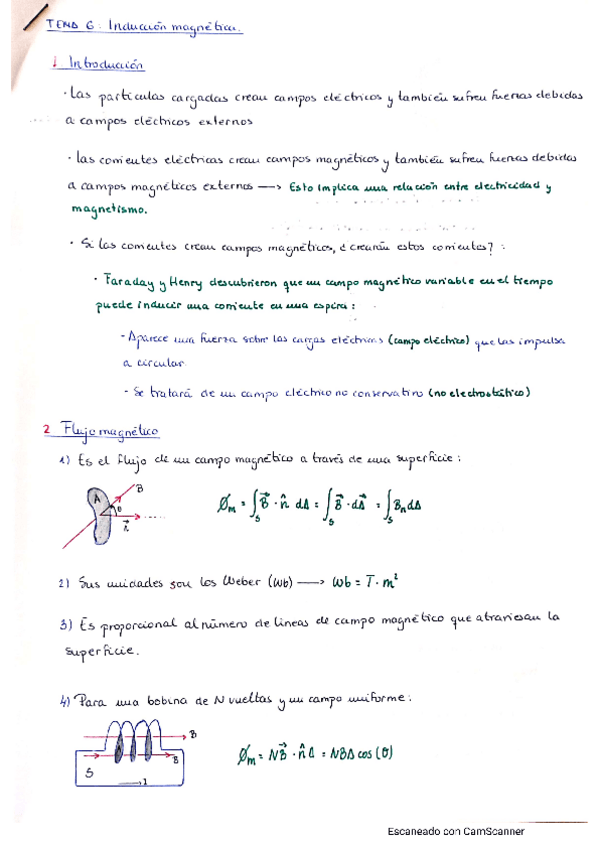 TEMA 6: Inducción magnética.
1 Introducción
· Las partículas cargadas crean campos eléctricos y también sufren fuerzas debidas
a campos eléctricos externos
· Las corrientes eléctricas crean campos magnéticos y también sufren fuerzas debidas
a campos magnéticos externos —> Esto implica una relación entre electricidad y
magnetismo.
· Si las corrientes crean campos magnéticos, ¿crearán estos corrientes? :
· Faraday y Henry descubrieron que un campo magnético variable en el tiempo
puede inducir una corriente en una espira:
- Aparece una fuerza sobre las cargas eléctricas (campo eléctrico) que las impulsa
a circular
- Se tratará de un campo eléctrico no conservativo (no electrostático)
2 Flujo magnético
1) Es el flujo de un campo magnético a través de una superficie:
A B θ n̂
Øm = ∫s B⃗ · n̂ dA = ∫s B⃗ · dA⃗ = ∫s Bn dA
2) Sus unidades son los Weber (Wb) —> Wb = T · m²
3) Es proporcional al número de líneas de campo magnético que atraviesan la
superficie.
4) Para una bobina de N vueltas y un campo uniforme:
B
B
S
I
Øm = NB⃗ · n̂ A = NBA cos(θ)
Escaneado con CamScanner